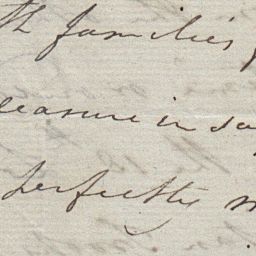 th families
easure in sa
perfectly